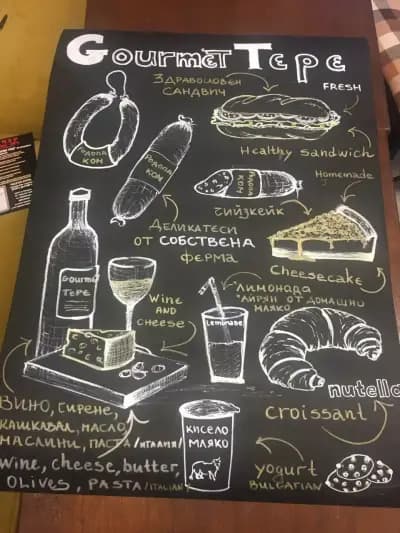 Gourmet Tepe
ЗДРАВОСЛОВЕН
САНДВИЧ
FRESH
РОДОПА
КОМ
РОДОПА
КОМ
Healthy sandwich
Homemade
ЧИЙЗКЕЙК
ДЕЛИКАТЕСИ
ОТ СОБСТВЕНА
ФЕРМА
Cheesecake
Gourmet
TEPE
Wine
AND
cheese
ЛИМОНАДА
АЙРЯН ОТ ДОМАШНО
МЛЯКО
Lemonade
nutella
croissant
ВИНО, СИРЕНЕ,
КАШКАВАЛ, МАСЛО,
МАСЛИНИ, ПАСТА /ИТАЛИЯ/
wine, cheese, butter,
OLIVES, PASTA /ITALIAN/
КИСЕЛО
МЛЯКО
yogurt
BULGARIAN